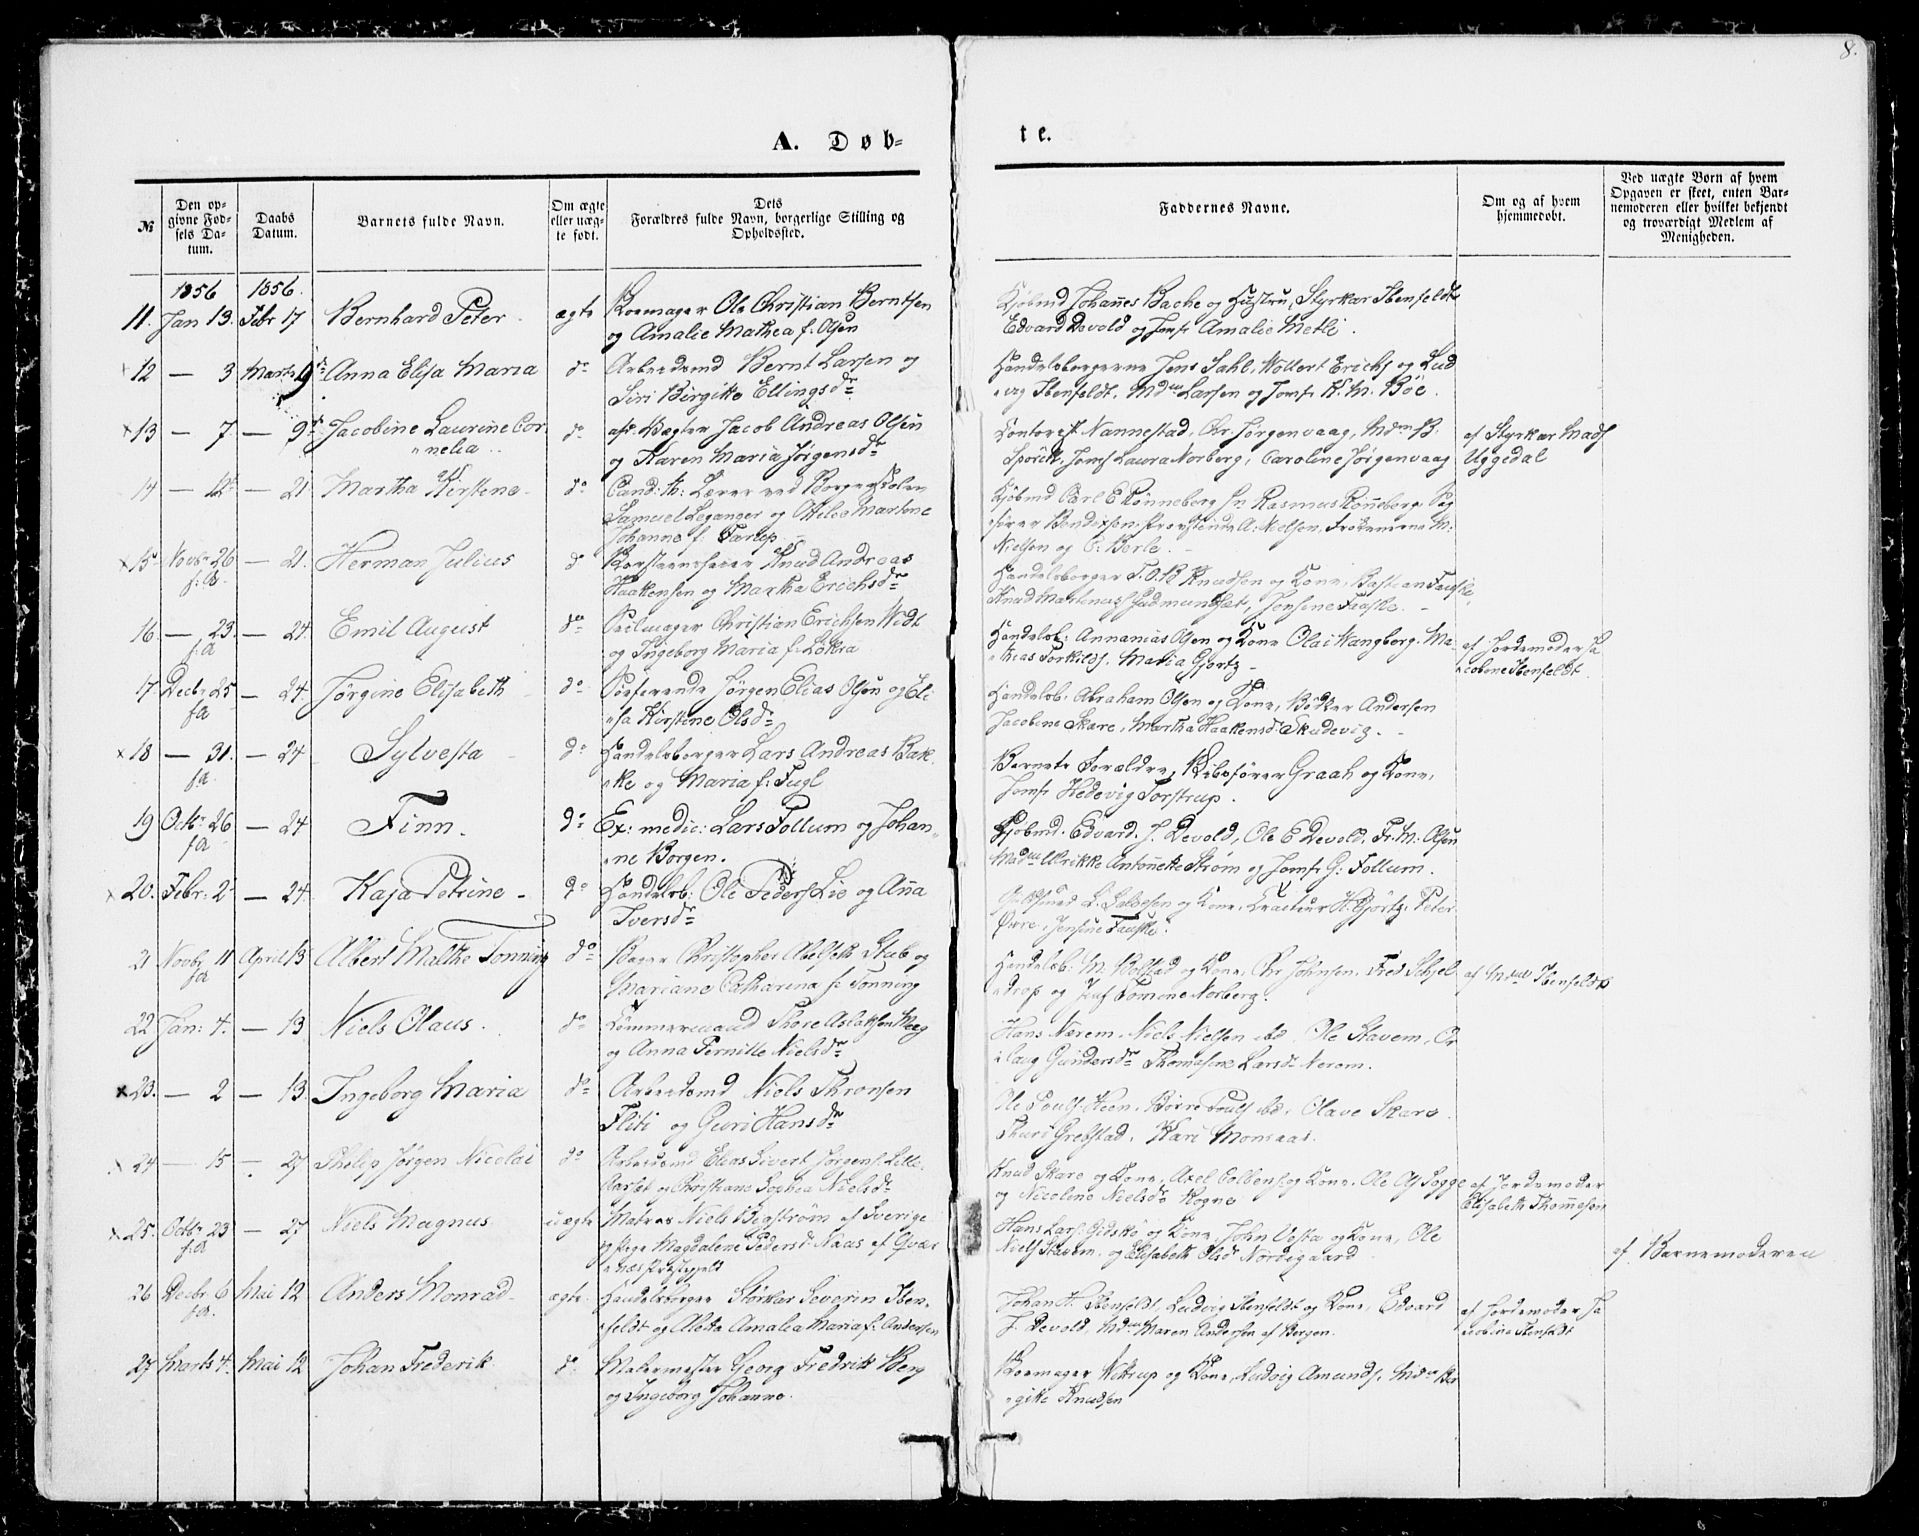 8.
A. Døb-
te.
№
Den op-
givne Fød-
sels Da-
tum.
Daabs
Datum.
Barnets fulde Navn.
Om ægte
eller uæg-
te født.
Dets
Forældres fulde Navn, borgerlige Stilling og
Opholdssted.
Faddernes Navne.
Om og af hvem
hjemmedøbt.
Ved uægte Børn af hvem
Opgaven er skeet, enten Bar-
nemoderen eller hvilket bekjendt
og troværdigt Medlem af
Menigheden.
1856 1856
11. Jan 13. Febr 17 Bernhard Peter. ægte Ole Christian Berntsen
og Amalie Mathea f. Olsen
Kjøbmd Johannes Backe og Hustru, Styrkar Ibenfeldt
Edvard Devold og Jomfr Amalie Metli.
12 — 3 Marts 9 Anna Elisa Maria do Arbeidsmd Bernt Larsen og
Siri Birgitte Ellingsdr
Handelsborgerne Jens Dahl, Wollert Erichs og Lud
vig Ibenfeldt, Mdm Larsen og Jomfr K. M. Bøe.
13 — 7 — 9 Jacobine Laurine Cor
nelia do Jacob Andreas Olsen
og Karen Maria Jørgensdr
Nannestad, Chr. Jørgenvaag, Mdm B.
Jomf Laura Norberg, Caroline Jørgenvaag
af Styrkar Mads
Uggedal
14 — 12 — 21 Martha Kirstine do Cand: th: Lærer ved Borgerskolen
Samuel Leganger og Otilie Martine
Johanne f: Tarup.
Kjøbmd Carl E Rønneberg, Rasmus Rønneberg,
Bendixsen, A: Nielsen, Frøknerne M:
Nielsen og C: Berle.
15 Novbr 26
f: A. — 21. Herman Julius do Knud Andreas
Haakensen og Martha Erichsdr
Handelsborger T. O. B Knudsen og Kone, Bastian Fauske,
Knud Martinus Gudmundset, Jensine Fauske.
16 — 23.
f. A — 24. Emil August do Seilmager Christian Erichsen Widt
og Ingeborg Maria f: Løkra
Handelsb: Annanias Olsen og Kone Olai Wangberg, Ma
thias Torkilds, Maria Gjørtz
af Jordemoder Ja
cobine Ibenfeldt.
17 Decbr 25
fA — 24. Jørgine Elisabeth do Søefarende Jørgen Elias Olsen og Eli
sa Kirstine Olsdr
Handelsb: Abraham Olsen og Kone, Bødker Andersen
Jacobine Skare, Martha Haakensdr Skudevig.
18 — 31.
fA. — 24 Sylvesta do Handelsborger Lars Andreas Bak
ke og Maria f: Fugl
Barnets Forældre, Skibsfører Graah og Kone,
Jomfr Hedevig Torstrup.
19 Octbr 26
fA — 24 Finn. do Ex: medic: Lars Follum og Johan
ne Borgen.
Kjøbmd. Edvard. J. Devold, Ole E Devold, Fr: M: Olsen
Madm Ulrikke Antonette Strøm og Jomfr G: Follum.
20. Febr: 2 — 24. Kaja Petrine do Handelsb: Ole Peders Lie og Anna
Iversdr
og Kone, H. Gjørtz, Peter
Øvre, Jensine Fauske.
21 Novbr 11
fA April 13 Albert Malthe Tonning do Bager Christopher Abelseth Stub og
Mariane Catharina f: Tonning
Handelsb: M. Rolstad og Kone, Chr Johnsen, Fred Schjel
drop og Jmf Tomine Norberg.
af Mdm Ibenfeldt
22 Jan: 4. — 13 Niels Olaus. do Tømmermand Thore Aslaksen
og Anna Pernille Nielsdr
Hans Nærem, Niels Nielsen ibd, Ole Stavem, Or
laug Gundersdr Thomasine Larsdr Nerem.
23. — 2 — 13. Ingeborg Maria do Arbeidsmd Niels Thronsen
Fliti og Guri Hansdr
Ole Pouls Heen, Børre Pouls ibd, Olave Skare
Thuri Grebstad, Kari Monsaas.
24 — 15 — 27 Philip Jørgen Nicolai do Arbeidsmd Elias Sivert Jørgens Lille
og Christiane Sophia Nielsdr
Knud Skare og Kone, Axel Colbens og Kone, Ole Ols Sogge
og Nicoline Nielsdr Rogne
af Jordemoder
Elisabeth Thommesen
25. Octbr 23
fA — 27 Niels Magnus uægte Matros Niels Bigstrøm af Sverige
og Pige Magdalene Pedersdr Naas af
næs Præstegjeld
Hans Lars Gidskø og Kone, John Vesta og Kone, Ole
Niels Stavem, og Elisabeth Olsdr Nordigaard
af Barnemoderen
26 Decbr 6
fA. Mai 12 Anders Monrad ægte Handelsborger Størker Severin Iben
feldt og Aletta Amalia Maria f: Andersen
Johan H. Ibenfeldt, Ludvig Ibenfeldt og Kone, Edvard
J. Devold, Mdm Maren Andersen af Bergen.
af Jordemoder Ja
cobine Ibenfeldt
27 Marts 4. Mai 12 Johan Frederik do Malermester Georg Fredrik Berg
og Ingeborg Johanne.
og Kone, Ludvig Amunds, Mdm Bir
gitte Knudsen